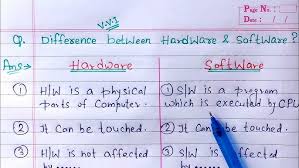 Page No.:
Date: / /
V.V.I
Q. Difference between Hardware & Software?
Ans→ Hardware Software
① H/W is a physical parts of Computer.
① S/W is a program which is executed by CPU
② It Can be touched.
② It Can be touched.
③ H/W is not affected by
③ S/W is affected